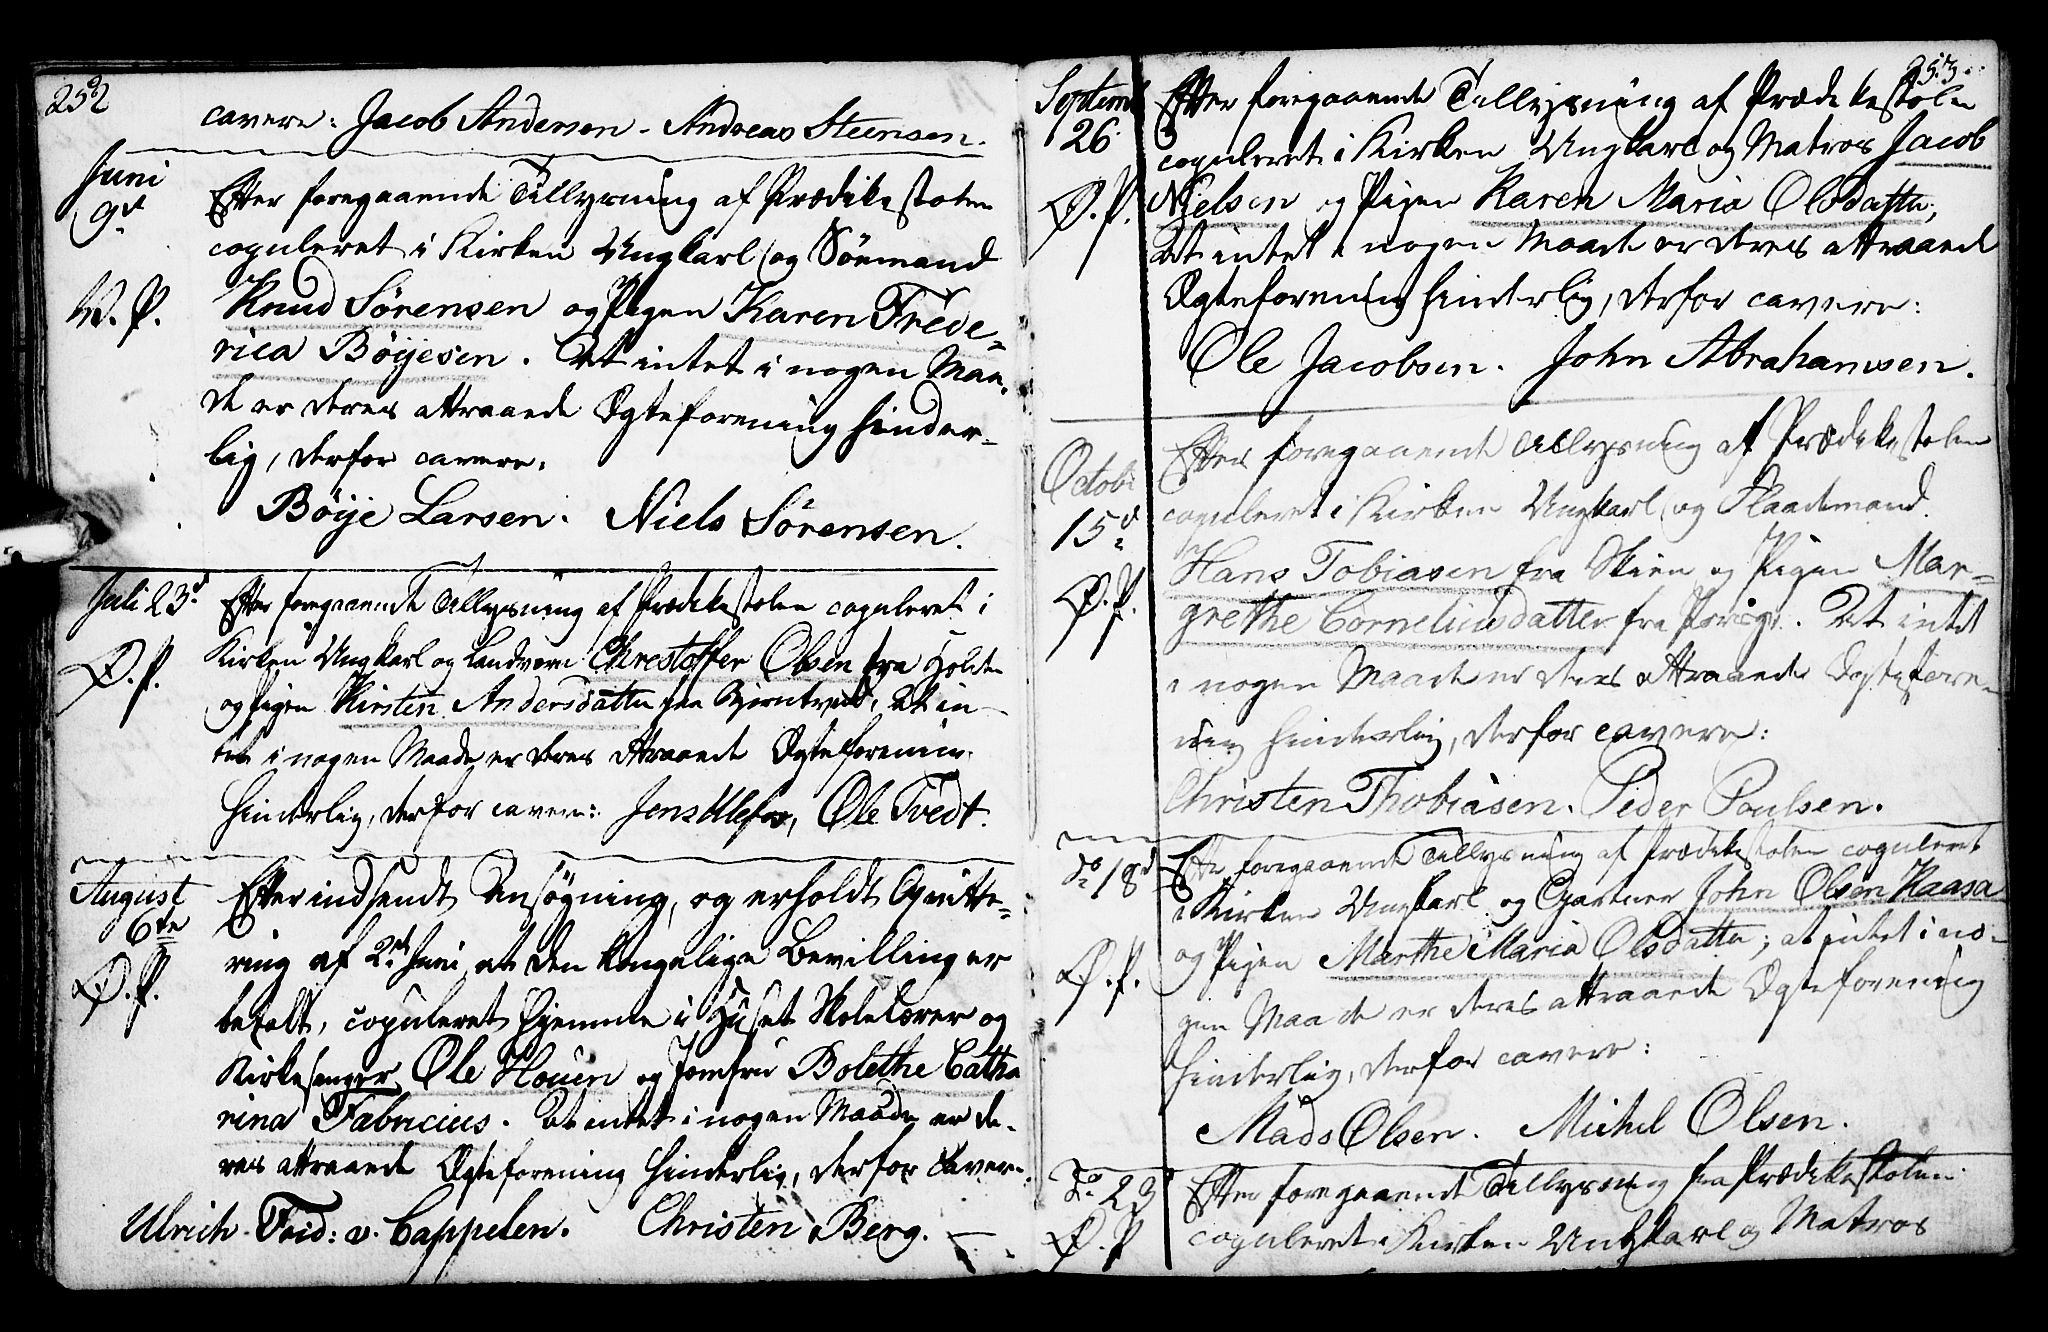 252
cavere: Jacob Andersen - Andreas Steensen.
Juni
9d
V. P.
Efter foregaaende Tillysning af Prædikestolen
copuleret i Kirken Ungkarl og Sömand
Knud Sörensen og Pigen Karen Frede-
rica Böÿesen. At intet i nogen Maa-
de er deres attraaede Ægteforening hinder-
lig, derfor cavere:
Böÿe Larsen. Niels Sörensen.
Juli 23d
Ø. P.
Efter foregaaende Tillysning af Prædikestolen copuleret i
Kirken Ungkarl og Landvern Chrestoffer Olsen fra Holden
og Pigen Kirsten Andersdatter fra Bjerntvedt, At in-
tet i nogen Maade er deres Attraaede Ægteforening
hinderlig, derfor cavere: Jens Ulefos, Ole Tvedt.
August
6te
Ø. P.
Efter indsendt Ansögning, og erholdt Qvitte-
ring af 2d Juni at den kongelige Bevilling er
betalt, copuleret hjemme i Huset Skolelærer og
Kirkesanger Ole Houen og Jomfru Bolethe Catha
rina Fabricius. At intet i nogen Maade er de-
res attraaede Ægteforening hinderlig, derfor cavere:
Ulrich Frid: v. Cappelen. Christen Berg.
253
Septemb
26
Ø. P.
Efter foregaaende Tillysning af Prædikestolen
copuleret i Kirken Ungkarl og Matros Jacob
Nielsen og Pigen Karen Maria Olsdatter,
At intet i nogen Maade er deres attraaede
Ægteforening hinderlig, derfor cavere:
Ole Jacobsen. John Abrahamsen.
Octob:
15d
Ø. P.
Efter foregaaende Tillysning af Prædikestolen
copuleret i Kirken Ungkarl og Flaademand
Hans Tobiasen fra Skien og Pigen Mar-
grethe Corneliusdatter fra Porsgr. At intet
i nogen Maade er deres attraaede Ægtefore-
ning hinderlig, derfor cavere:
Christen Thobiasen. Peder Poulsen.
Do 18d
Ø. P.
Efter foregaaende Tillysning af Prædikestolen copuleret
i Kirken Ungkarl og Gartner John Olsen Kaasa
og Pigen Marthe Maria Olsdatter; at intet i no-
gen Maade er deres attraaede Ægteforening
hinderlig, derfor cavere:
Mads Olsen. Michel Olsen.
Do 23
Ø. P
Efter foregaaende Tillysning fra Prædikestolen
copuleret i Kirken Ungkarl og Matros